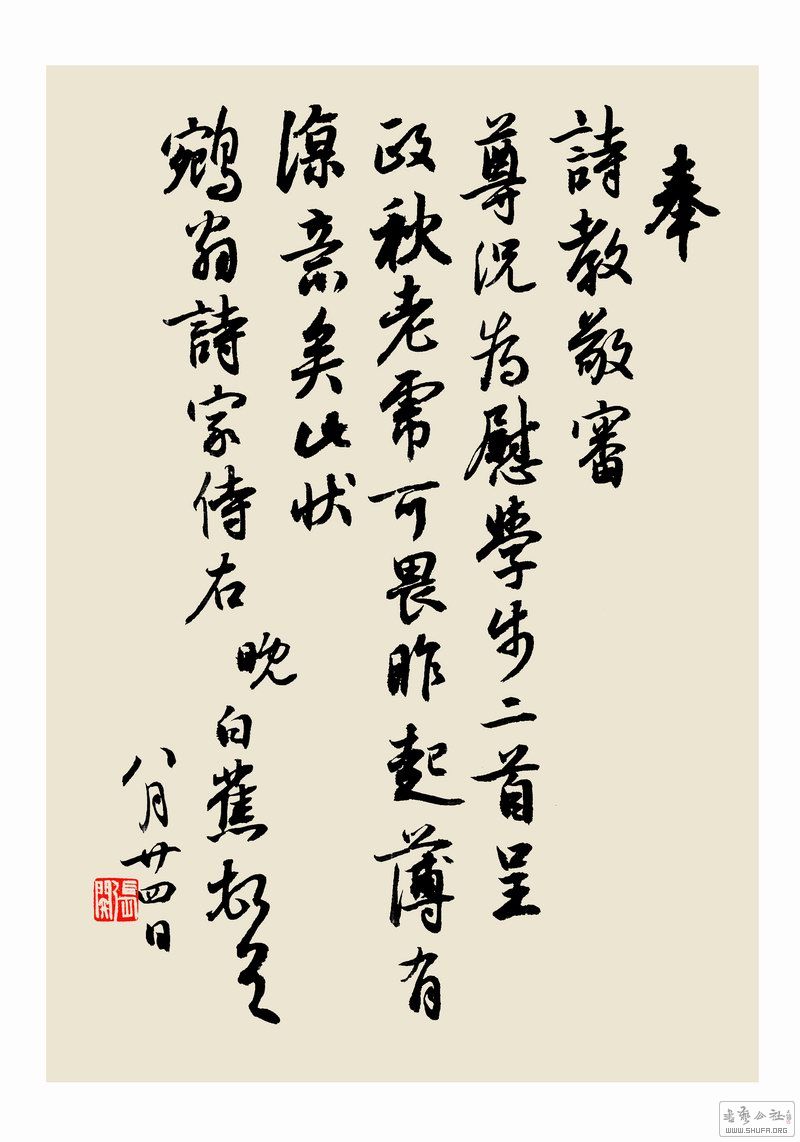 奉
詩教敬審
尊況為慰學步二首呈
政秋老虎可畏昨起薄有
涼意矣此狀
鵷翁詩家侍右
晚白蕉頓首
八月廿四日
書藝公社
WWW.SHUFA.ORG